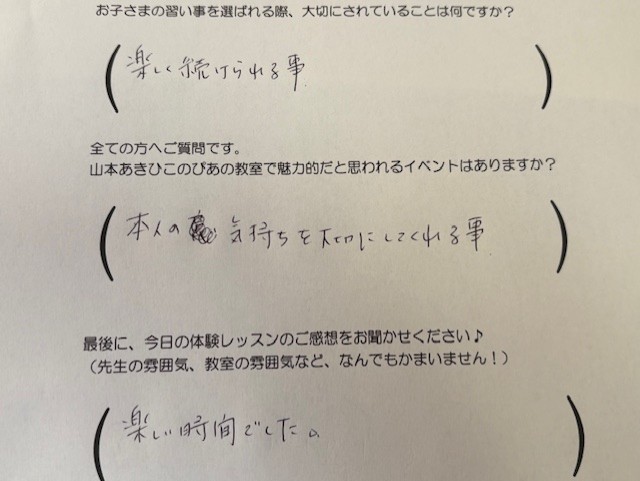 お子さまの習い事を選ばれる際、大切にされていることは何ですか?
(楽しく続けられる事)
全ての方へご質問です。
山本あきひこのぴあの教室で魅力的だと思われるイベントはありますか?
(本人の 気持ちを大切にしてくれる事)
最後に、今日の体験レッスンのご感想をお聞かせください♪
(先生の雰囲気、教室の雰囲気など、なんでもかまいません!)
(楽しい時間でした。)